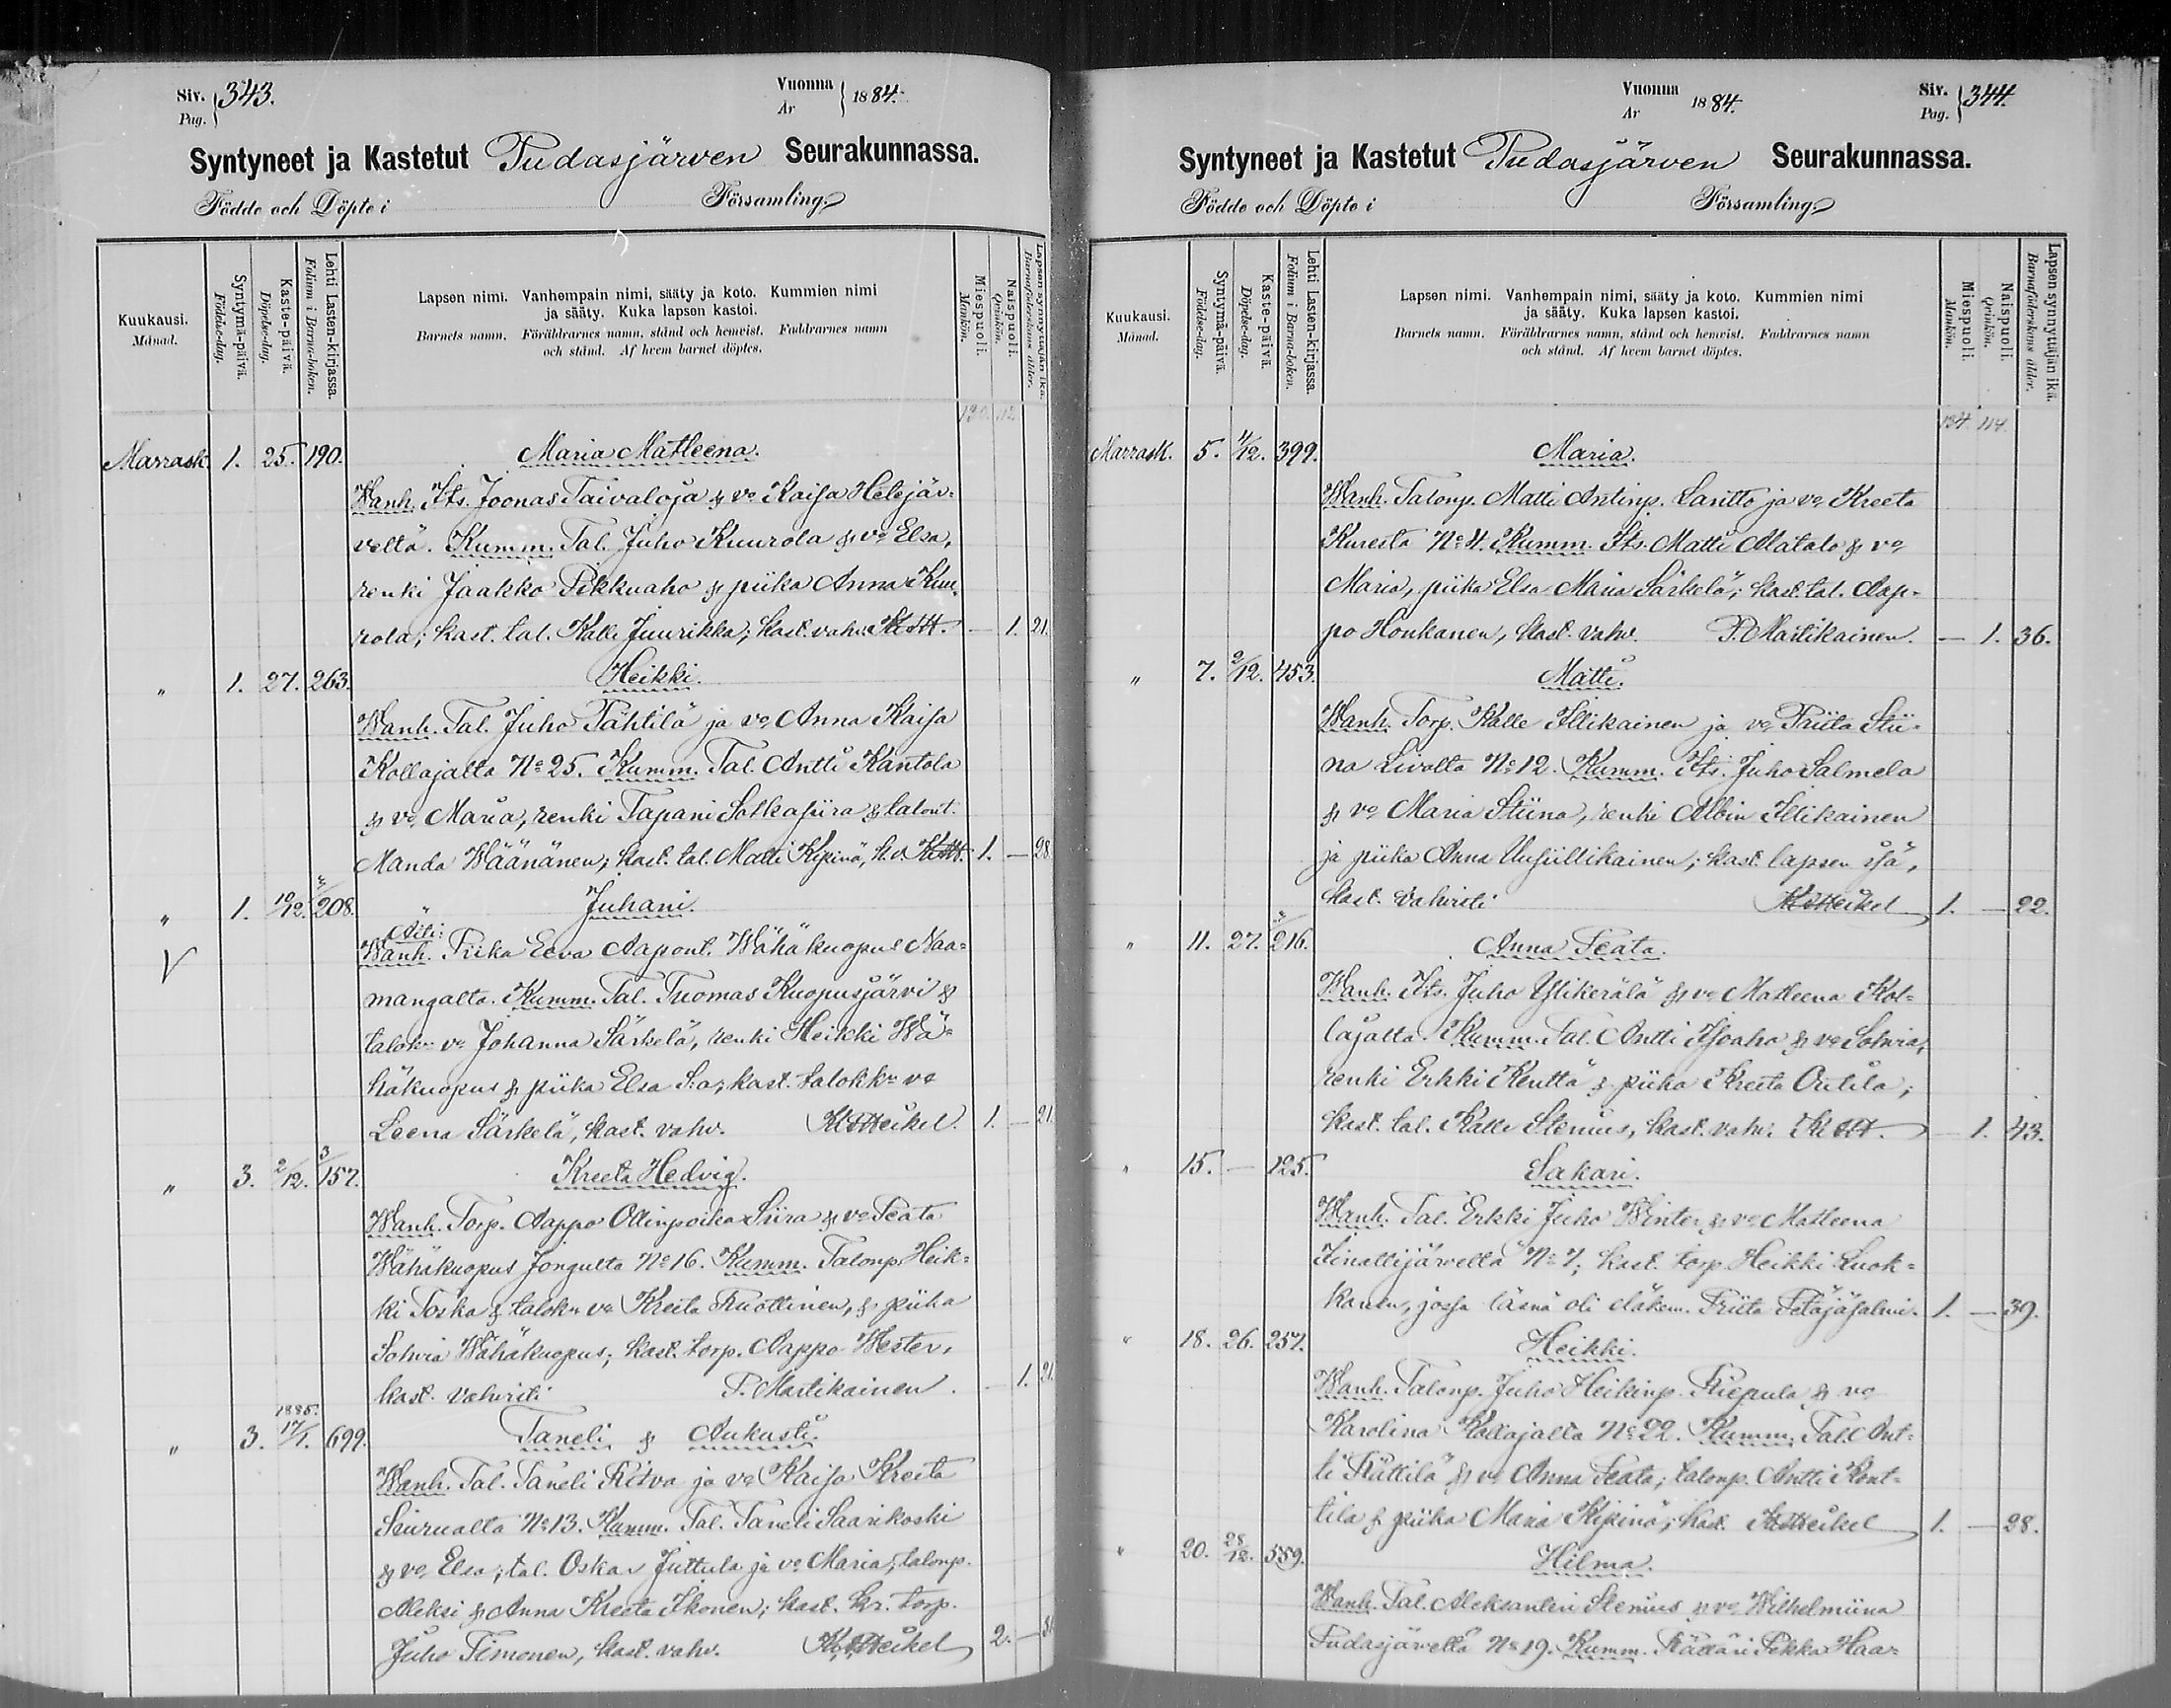 Siv. 343.
Pag.
Vuonna 1884.
År
Syntyneet ja Kastetut Pudasjärven Seurakunnassa.
Födde och Döpte i Församling.
Kuukausi.
Månad.
Syntymä-päivä.
Födelse-dag.
Kaste-päivä.
Döpelse-dag.
Lehti Lasten-kirjassa.
Folium i Barna-boken.
Lapsen nimi. Vanhempain nimi, sääty ja koto. Kummien nimi
ja sääty. Kuka lapsen kastoi.
Barnets namn. Föräldrarnes namn, stånd och hemvist. Faddrarnes namn
och stånd. Af hvem barnet döptes.
Miespuoli.
Mankön.
Naispuoli.
Qvinkön.
Lapsen synnyttäjän ikä.
Barnaföderskans ålder.
130. 112
Marrask. 1. 25. 190. Maria Matleena.
Wanh. Its. Joonas Taivaloja & vo Kaisa Hetejär-
veltä. Kumm. Tal. Juho Kuurola & vo Elsa,
renki Jaakko Pikkuaho & piika Anna Kuu-
rola; kast. tal. Kalle Juurikka; kast. vahv. — 1. 21.
„ 1. 27. 263. Heikki.
Wanh. Tal. Juho Tähtilä ja vo Anna Kaisa
Kollajalta No 25. Kumm. Tal. Antti Kantola
& vo Maria, renki Tapani Sotkasiira & talont.
Manda Wäänänen; kast. tal. Matti Kipinä, k. v. 1. — 28
„ 1. 10/12. 208. Juhani.
Äiti:
V Wanh. Piika Eeva Aapont. Wähäkuopus Naa-
mangalta. Kumm. Tal. Tuomas Kuopusjärvi &
talok:n vo Johanna Särkelä, renki Heikki Wä-
häkuopus & piika Elsa S:a; kast. talokkn vo
Leena Särkelä, kast. vahv. K. Heikel. 1. — 21.
„ 3. 2/12. 3/157. Kreeta Hedvig.
Wanh. Torp. Aappo Ollinpoika Siira & vo Beata
Wähäkuopus Jongulta No 16. Kumm. Talonp. Heik-
ki Toska & talokn vo Kreeta Ruottinen, & piika
Sohvia Wähäkuopus; kast. torp. Aappo Wester,
kast. vahvisti P. Martikainen. — 1. 21.
„ 3. 1885. 17/1. 699. Taneli & Aukusti.
Wanh. Tal. Taneli Ritva ja vo Kaisa Kreeta
Siurualta No 13. Kumm. Tal. Taneli Saarikoski
& vo Elsa; tal. Oskar Juttula ja vo Maria, talonp.
Aleksi & Anna Kreeta Ikonen; kast. kr. torp.
Juho Timonen, kast. vahv. K. Heikel 2. —
Vuonna 1884.
År
Siv. 344.
Pag.
Syntyneet ja Kastetut Pudasjärven Seurakunnassa.
Födde och Döpte i Församling.
Kuukausi.
Månad.
Syntymä-päivä.
Födelse-dag.
Kaste-päivä.
Döpelse-dag.
Lehti Lasten-kirjassa.
Folium i Barna-boken.
Lapsen nimi. Vanhempain nimi, sääty ja koto. Kummien nimi
ja sääty. Kuka lapsen kastoi.
Barnets namn. Föräldrarnes namn, stånd och hemvist. Faddrarnes namn
och stånd. Af hvem barnet döptes.
Miespuoli.
Mankön.
Naispuoli.
Qvinkön.
Lapsen synnyttäjän ikä.
Barnaföderskans ålder.
134. 114.
Marrask. 5. 4/12. 399. Maria.
Wanh. Talonp. Matti Antinp. Lantto ja vo Kreeta
Kuresta No 4. Kumm. Its. Matti Alatalo & vo
Maria, piika Elsa Maria Särkelä; kast. tal. Aap-
po Honkanen, kast. vahv. P. Martikainen. — 1. 36.
„ 7. 2/12. 453. Matti.
Wanh. Torp. Kalle Illikainen ja vo Priita Stii-
na Livolta No 12. Kumm. Its. Juho Salmela
& vo Maria Stiina, renki Albin Illikainen
ja piika Anna Uusiillikainen; kast. lapsen isä,
kast. vahvisti K. Heikel 1. — 22.
„ 11. 27. 216. Anna Beata.
Wanh. Its. Juho Ylikerälä & vo Matleena Kol-
lajalta. Kumm. Tal. Antti Isoaho & vo Sohvia,
renki Erkki Kenttä & piika Kreeta Outila;
kast. tal. Kalle Stenius, kast. vahv. — 1. 43.
„ 15. — 125. Sakari.
Wanh. Tal. Erkki Juho Winter & vo Matleena
Iinattijärveltä No 7; kast. torp. Heikki Luok-
kanen, jossa läsnä oli eläkem. Priita Petäjäsalmi. 1. — 39.
„ 18. 26. 257. Heikki.
Wanh. Talonp. Juho Heikinp. Riepula & vo
Karolina Kollajalta No 22. Kumm. Tal. Ant-
ti Rüttilä & vo Anna Beata; talonp. Antti Kont-
tila & piika Maria Kipinä; kast. K. Heikel 1. — 28.
„ 20. 28/12. 559. Hilma.
Wanh. Tal. Aleksanteri Stenius & vo Wilhelmiina
Pudasjärveltä No 19. Kumm. Räätäri Pekka Haa-